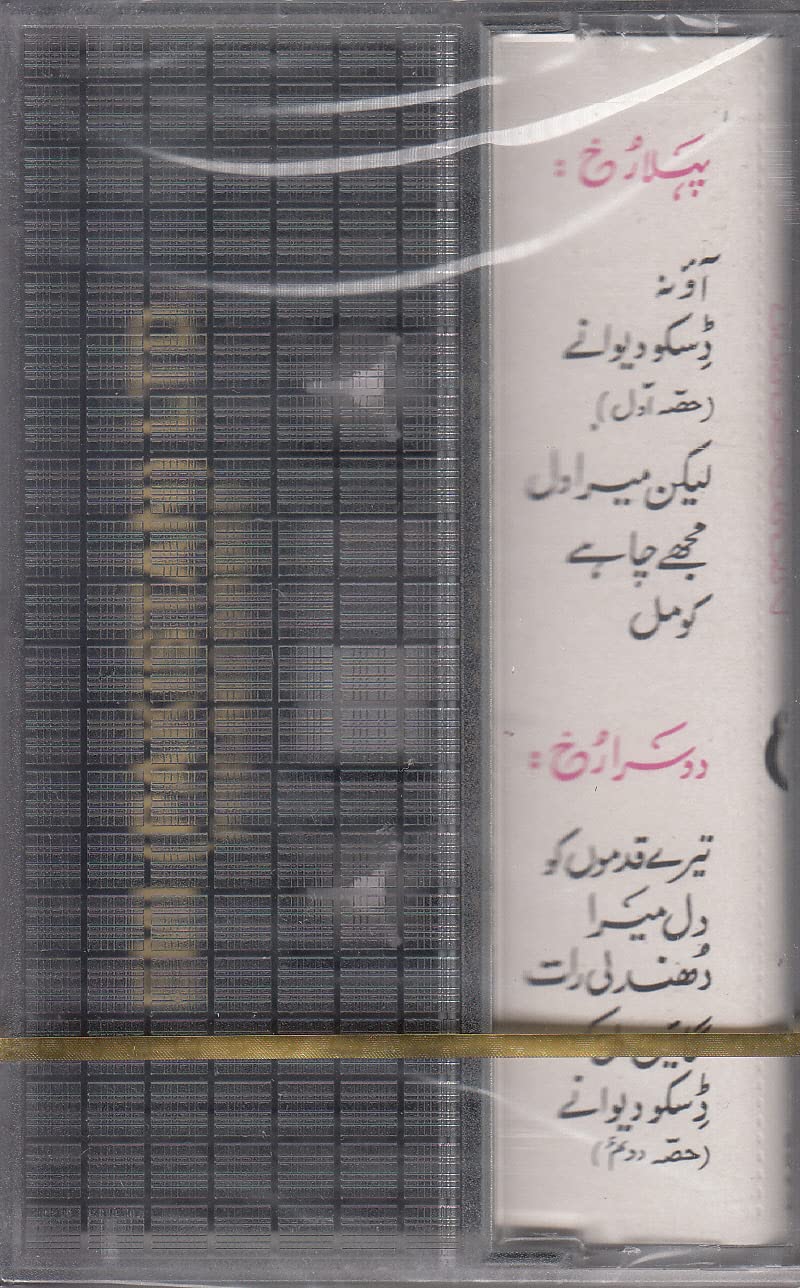 پہلا رُخ :
آؤ نہ
ڈِسکو دیوانے
(حصّہ اَوّل)
لیکن میرا دل
مجھے چاہے
کومل
دوسرا رُخ :
تیرے قدموں کو
دل میرا
دُھندلی رات
ڈِسکو دیوانے
(حصّہ دوئم)
EMI (PAKISTAN) LTD